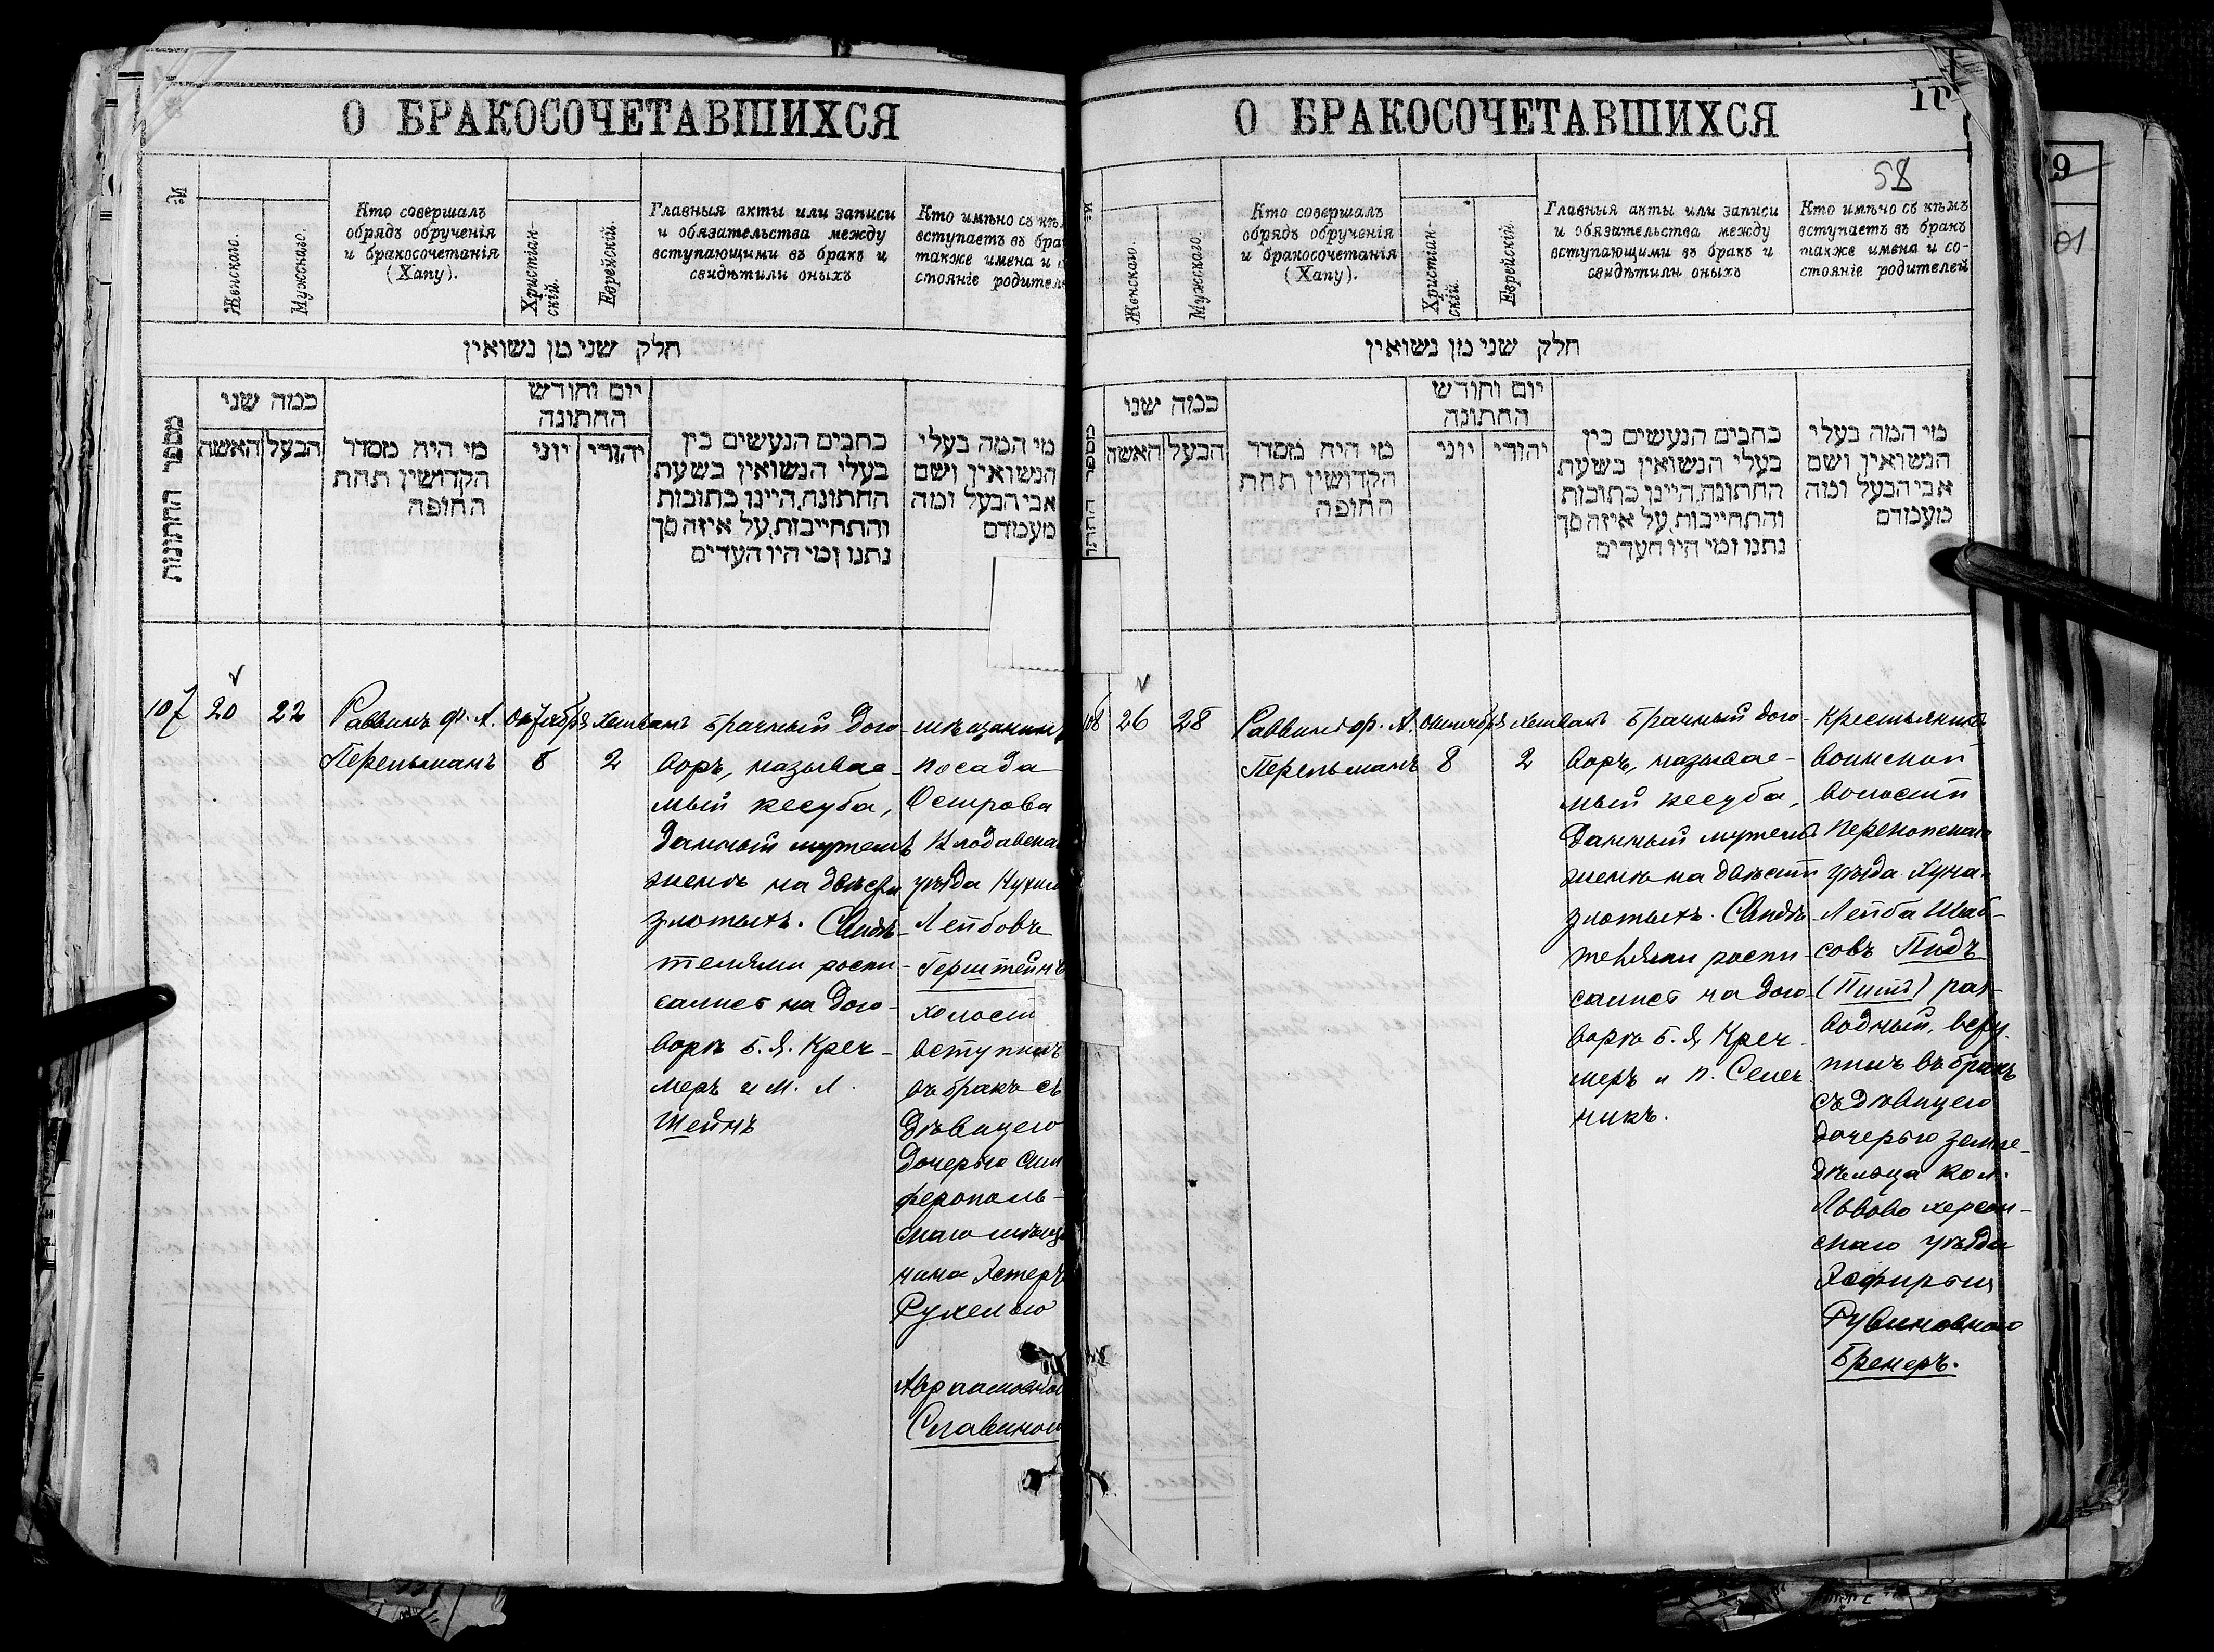 О БРАКОСОЧЕТАВШИХСЯ
№
Женскаго.
Мужскаго.
Кто совершалъ
обрядъ обрученія
и бракосочетанія
(Хапу).
Христіан-
скій.
Еврейскій.
Главныя акты или записи
и обязательства между
вступающими въ бракъ и
свидѣтили оныхъ
Кто имѣно съ
вступаетъ въ
также имена и
стояніе
חלק שני מן נשואין
מספר החתונות
כמה שני
האשה
הבעל
מי היה מסדר
הקדושין תחת
החופה
יום וחודש
החתונה
יוני
יהודי
כתבים הנעשים בין
בעלי הנשואין בשעת
החתונה היינו כתובות
והתחייבות, על איזה סך
נתנו ומי היו העדים
מי המה בעלי
הנשואין ושם
אבי הבעל ומה
מעמדם
107
20
22
Раввинъ ф. А.
Перельманъ
Октября
8
Хешванъ
2
Брачный дого-
воръ, называе-
мый кесуба,
данный мужемъ
женѣ на двѣсти
злотыхъ. Свидѣ-
телями роспи-
сались на дого-
ворѣ Б. Я. Креч-
меръ и М. Л.
Штейнъ
мѣщанинъ
посада
Острова
уѣзда
Лейбовъ
Герштейнъ
холост
вступилъ
въ бракъ съ
дѣвицею
дочерью Сим
ферополь-
скаго
нина Эстеръ
Рухелью
Авраамовною
Славиною
О БРАКОСОЧЕТАВШИХСЯ
58
Женскаго.
Мужскаго.
Кто совершалъ
обрядъ обрученія
и бракосочетанія
(Хапу).
Христіан-
скій.
Еврейскій.
Главныя акты или записи
и обязательства между
вступающими въ бракъ и
свидѣтили оныхъ
Кто имѣно съ кѣмъ
вступаетъ въ бракъ
также имена и со-
стояніе родителей
חלק שני מן נשואין
כמה שני
האשה
הבעל
מי היה מסדר
הקדושין תחת
החופה
יום וחודש
החתונה
יוני
יהודי
כתבים הנעשים בין
בעלי הנשואין בשעת
החתונה היינו כתובות
והתחייבות, על איזה סך
נתנו ומי היו העדים
מי המה בעלי
הנשואין ושם
אבי הבעל ומה
מעמדם
108
26
28
Раввинъ ф. А.
Перельманъ
Октября
8
Хешванъ
2
Брачный дого-
воръ, называе-
мый кесуба,
данный мужемъ
женѣ на двѣсти
злотыхъ. Свидѣ-
телями роспи-
сались на дого-
ворѣ Б. Я. Креч-
меръ и
никъ.
Крестьянинъ
воинской
волости
Перекопскаго
уѣзда Хуна-
Лейба Шаб-
совъ Пидъ
(Питъ) раз-
водный, всту-
пилъ въ бракъ
съ дѣвицею
дочерью земле-
дѣльца кол.
Львово херсон-
скаго уѣзда
Рувиновною
Бремеръ.